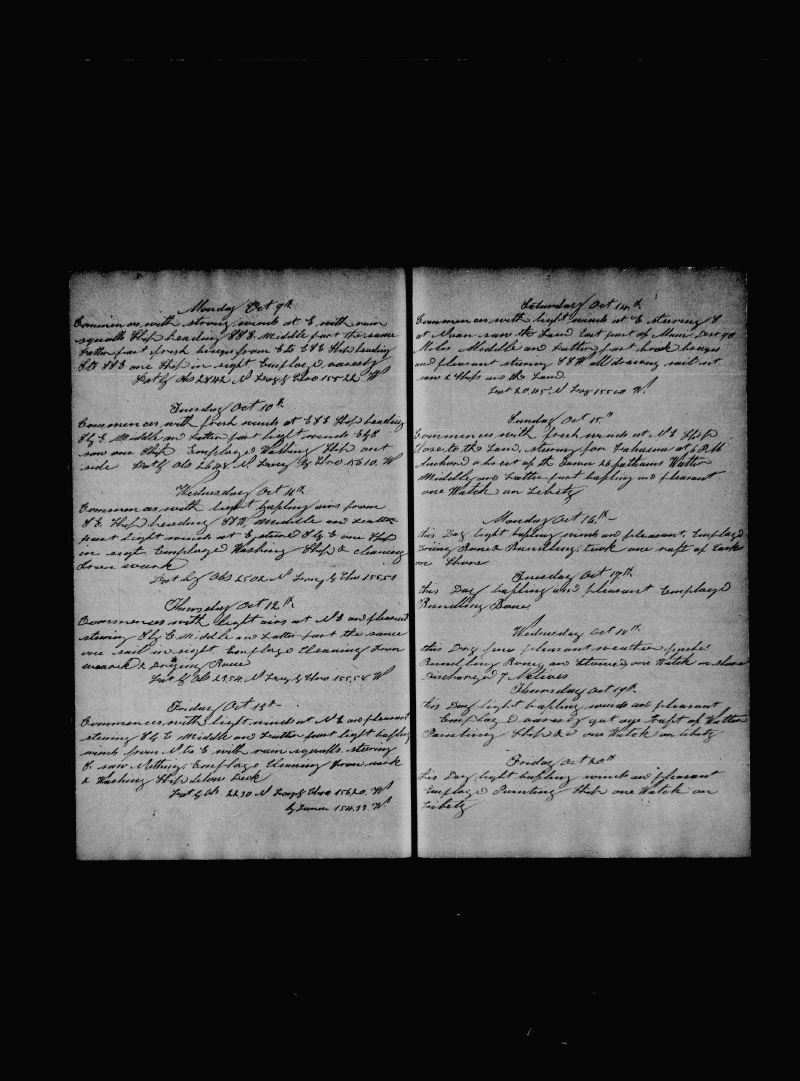 Monday Oct 9th
Commences with strong winds at E with rain
squalls Ship heading SSE Middle part the same
Latter part fresh breezes from E to ESE Ship heading
S to SSE one Ship in sight Employed variously
Lat by Obs 28.42 N Long by Chro 155.22 W
Tuesday Oct 10th
Commences with fresh winds at ESE Ship heading
S by E Middle and Latter part light winds E by S
saw one Ship Employed Washing Ship out
side Lat by Obs 26.48 N Long by Chro 156.10 W
Wednesday Oct 11th
Commences with light bafling airs from
SE Ship heading SSW Middle and Latter
part Light winds at E steered S by E one Ship
in sigt Employed Washing Ship & cleaning
Iron work
Lat by Obs 25.02 N Long by Chro 155.51
Thursday Oct 12th
Commences with light airs at NE and pleasant
stering S by E Middle and Latter part the same
one sail in sight Employed Cleaning Iron
work & Bone
Lat by Obs 23.54 N Long by Chro 155.54 W
Friday Oct 13th
Commences with light wind at NE and pleasant
stering S by E Middle and Latter part light bafling
winds from N to E with rain squalls stering
S. saw Nothing. Employed Cleaning Iron work
& Washing Ship below Deck
Lat by Obs 22.30 N Long by Chro 156.20 W
by Lunar 154.33 W
Saturday Oct 14th
Commences with light winds at E steering S
at Noon saw the Land East part of Mowi Dist 40
Miles Middle and Latter part fresh breezes
and pleasant steering SSW all drawing sail set
saw 2 Ships and the Land
Lat 20.45 N Long 156.00 W
Sunday Oct 15th
Commences with fresh winds at NE Ship
Close to the Land, stering for Lahaina at 6 PM
Anchord abreast of the 26 fathoms Watter
Middle and Latter part bafling and pleasant
one Watch on Liberty
Monday Oct 16th
this Day light bafling winds and pleasant. Employed
Bone & Bundling took one raft of Casks
on Shore
Tuesday Oct 17th
this Day bafling and pleasant Employed
Bundling Bone
Wednesday Oct 18th
this Day fine pleasant weather
Bundling Bone and one Watch on shore
discharged 7 Natives
Thursday Oct 19th
this Day light bafling winds and pleasant
Employed variously got off Raft of Watter
Painting Ship &c one Watch on liberty
Friday Oct 20th
this Day light bafling winds and pleasant
Employed Painting Ship one Watch on
Liberty